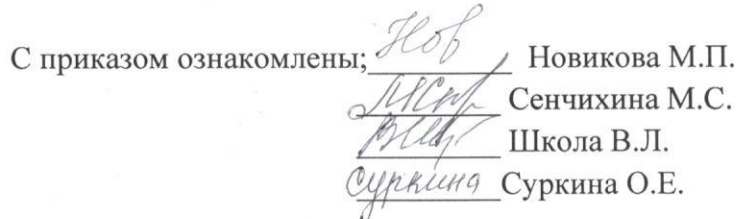 С приказом ознакомлены; Нов Новикова М.П.
Сенчихина М.С.
Школа В.Л.
Суркина Суркина О.Е.